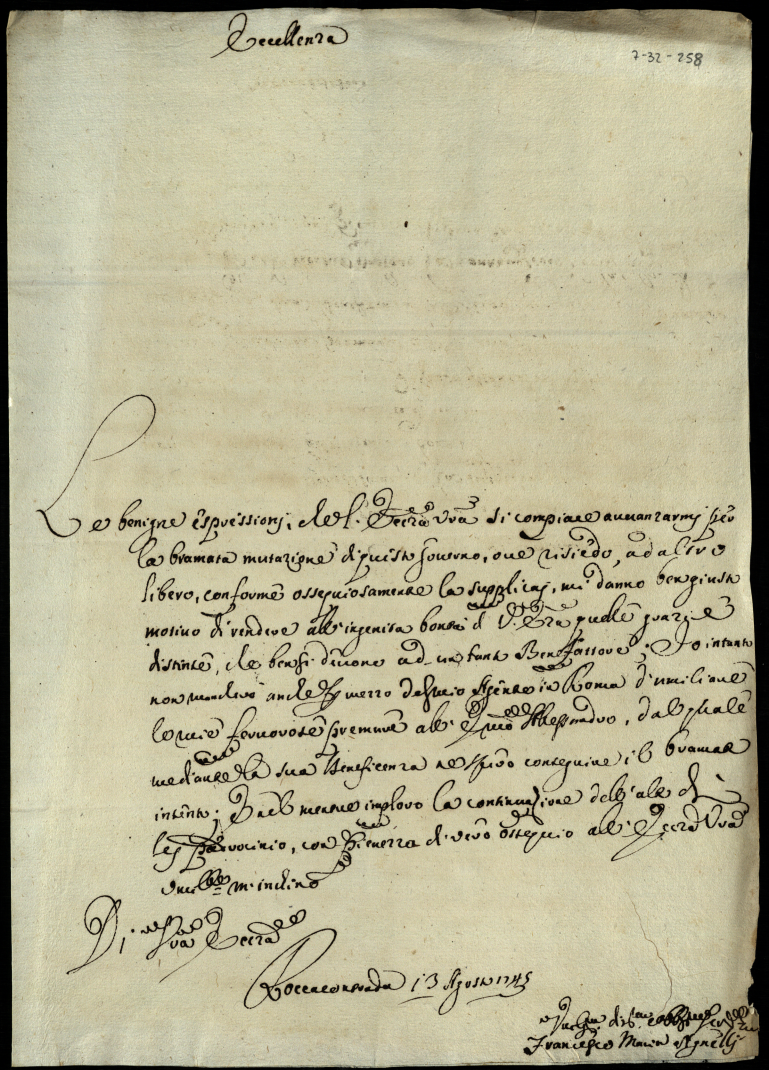 Eccellenza
7-32-258
Le benigne espressioni, che l' Ecc.za Vra si compiace avvanzarmi per
la bramata mutazione di questo Governo, ove risiedo, ad altro
libero, conforme ossequiosamente la supplicai, mi danno ben giusto
motivo di rendere all'ingenita bontà di V. Ecc.za quelle grazie
distinte, che ben si devono ad un tanto Benefattore. Io intanto
non mancherò anche per mezzo del mio Agente in Roma d'umiliare
le mie fervorose premure all' Alessandro, dal quale
mediante la sua Beneficenza ne spero conseguire il bramato
intento; E nel mentre imploro la continuazione dell'alto di
lej Patrocinio, con pienezza di vero ossequio all' Ecc.za Vra
umil.te m'inchino
Di Vra Ecc.za
Roccacontrada 13 Agosto 1745
Francesco Maria Agnelli